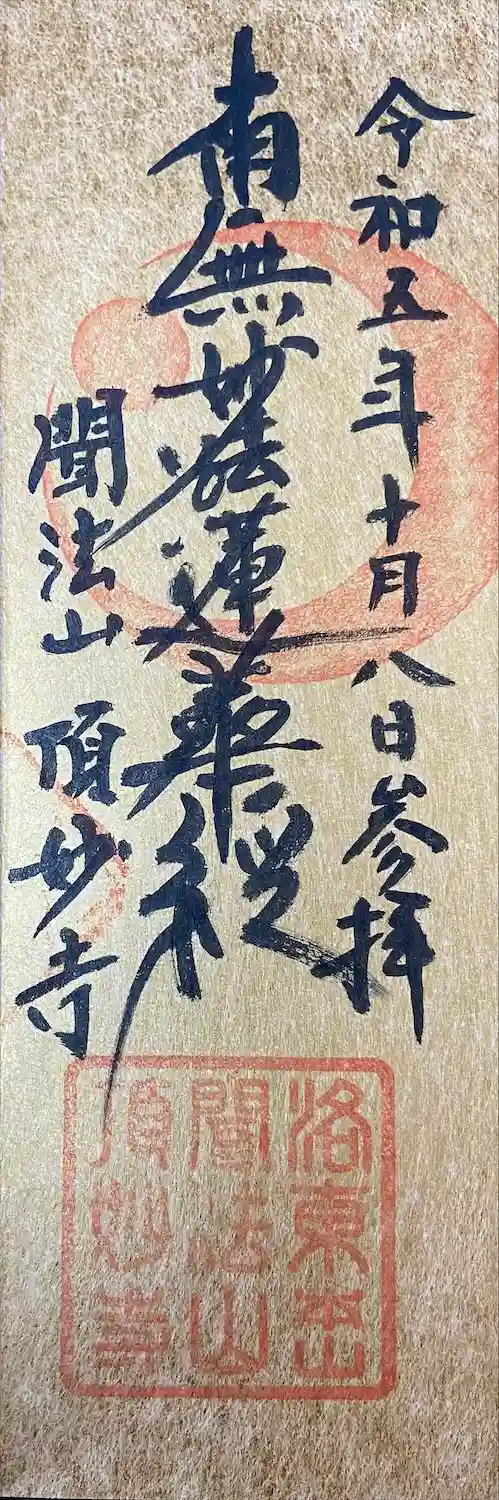 令和五年十月八日参拝
南無妙法蓮華経
聞法山 頂妙寺
洛東
聞法山
頂妙寺